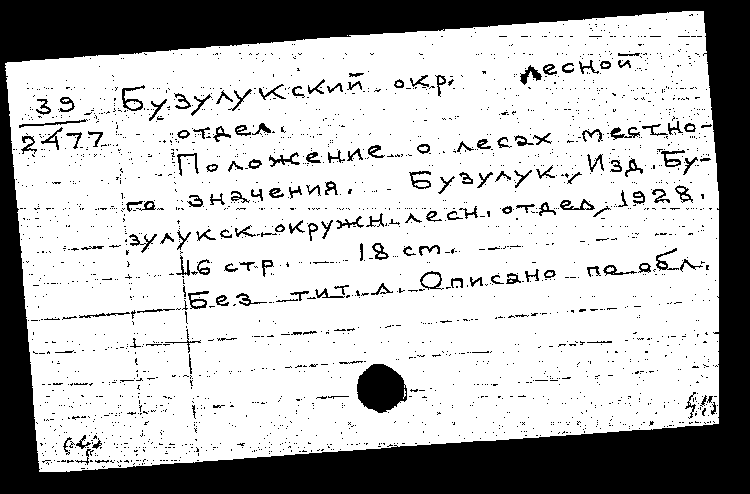 39
2477
Бузулукский окр. лесной
отдел.
Положение о лесах местно-
го значения. Бузулук, Изд. Бу-
зулукск. окружн. лесн. отдел, 1928.
16 стр. 18 ст.
Без тит. л. Описано по обл.